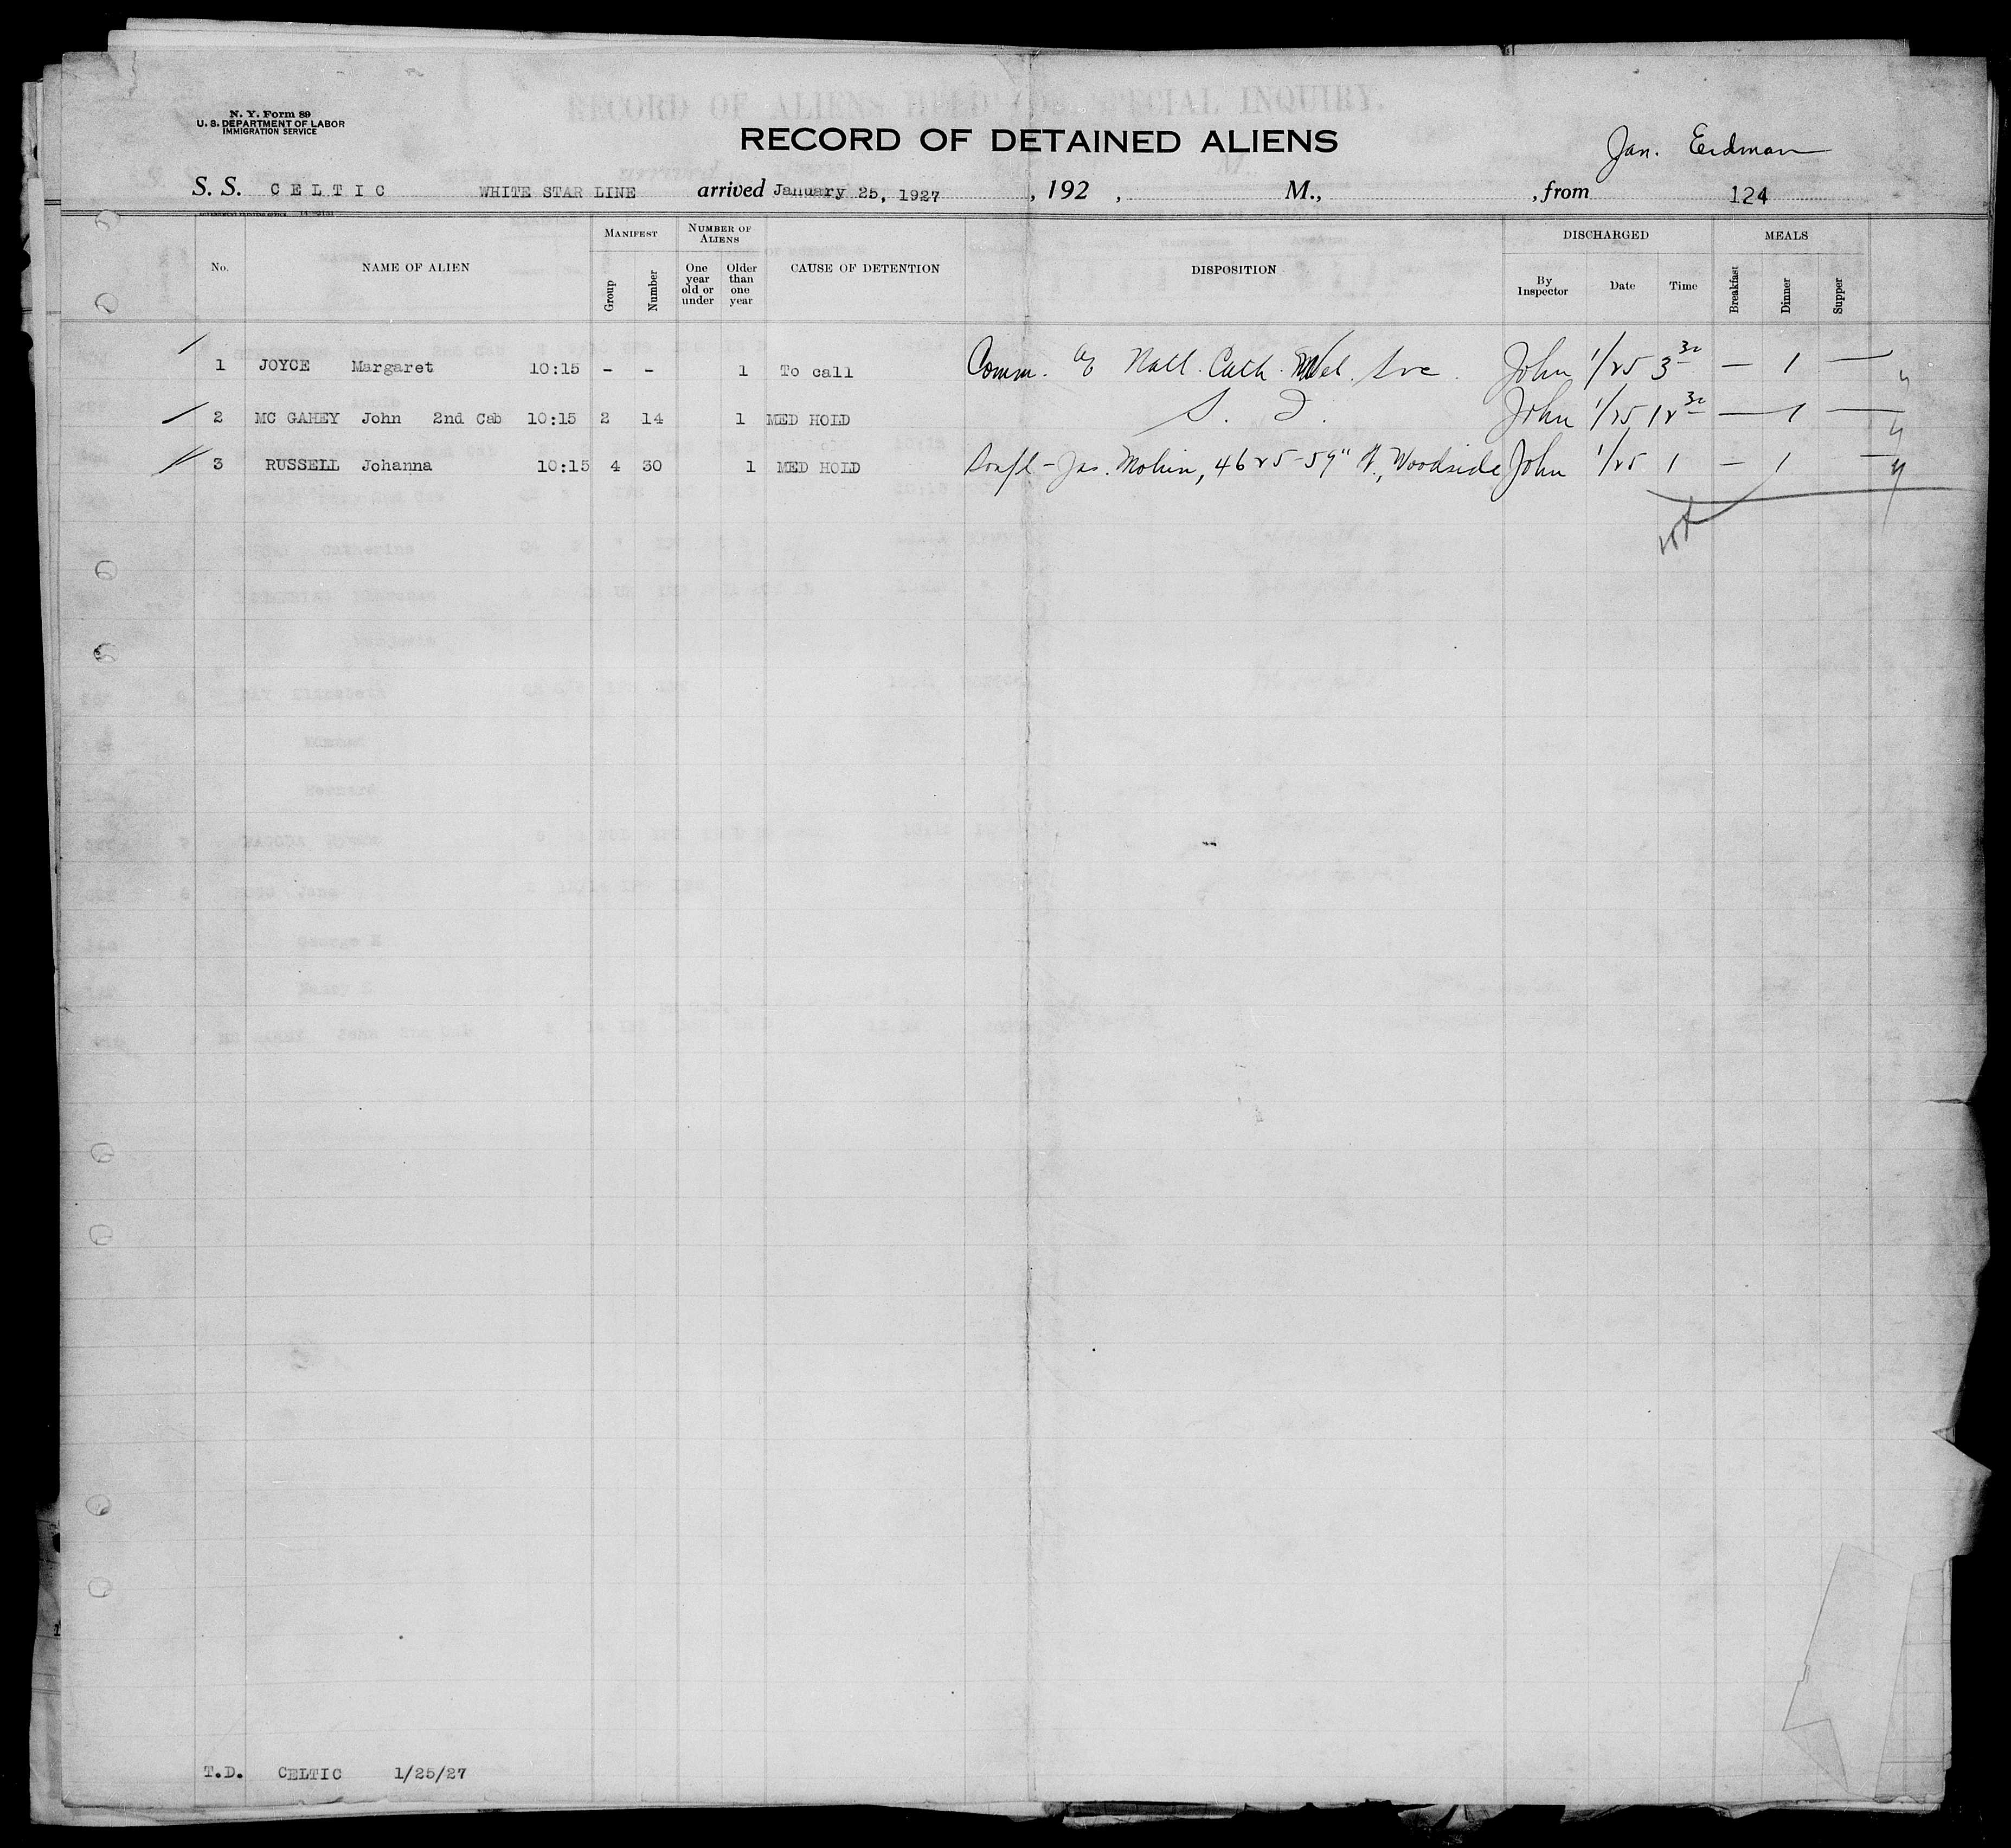 N. Y. Form 89
U. S. DEPARTMENT OF LABOR
IMMIGRATION SERVICE
RECORD OF ALIENS HELD FOR SPECIAL INQUIRY.
RECORD OF DETAINED ALIENS
Jan. Erdman
S. S. CELTIC WHITE STAR LINE arrived January 25, 1927, 192 , M., , from 124
GOVERNMENT PRINTING OFFICE
MANIFEST NUMBER OF ALIENS DISCHARGED MEALS
No. NAME OF ALIEN Group Number One year old or under Older than one year CAUSE OF DETENTION DISPOSITION By Inspector Date Time Breakfast Dinner Supper
1 JOYCE Margaret 10:15 - - 1 To call Comm. Natl. Cath. Wel. John 1/25 3 30 — 1 —
2 MC GAHEY John 2nd Cab 10:15 2 14 1 MED HOLD S. I. John 1/25 12 30 — 1 —
3 RUSSELL Johanna 10:15 4 30 1 MED HOLD Jas. 4625-59" St, Woodside John 1/25 1 — 1 —
T.D. CELTIC 1/25/27